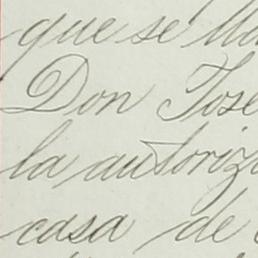 que se
Don José
la autoriz
casa de